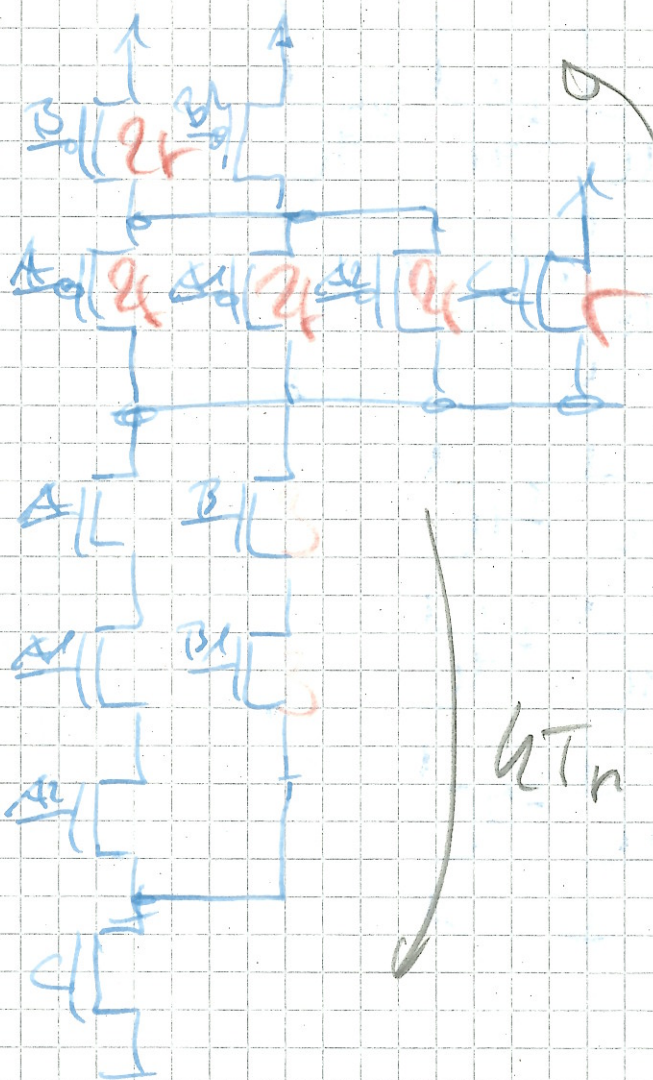 B 2r B1
A 2r A1 2r A2 2r C r
A B
A1 B1
A2
C